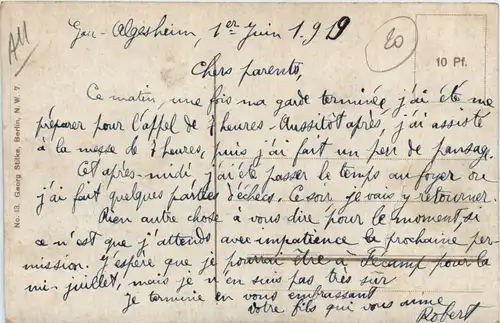 Gau-Algesheim, 1er Juin 1919
Chers parents,
Ce matin, une fois ma garde terminée, j'ai été me
préparer pour l'appel de 7 heures - Aussitôt après, j'ai assisté
à la messe de 7 heures, puis j'ai fait un peu de pansage.
Cet après-midi, j'ai été passer le temps au foyer où
j'ai fait quelques parties d'échecs. Ce soir je vais y retourner.
Rien autre chose à vous dire pour le moment, si
ce n'est que j'attends avec impatience la prochaine per-
mission. J'espère que je pourrai être à Fécamp pour la
mi-juillet, mais je n'en suis pas très sûr
Je termine en vous embrassant
Votre fils qui vous aime
Robert
10 Pf.
20
No. 13. Georg Stilke, Berlin, N. W. 7.